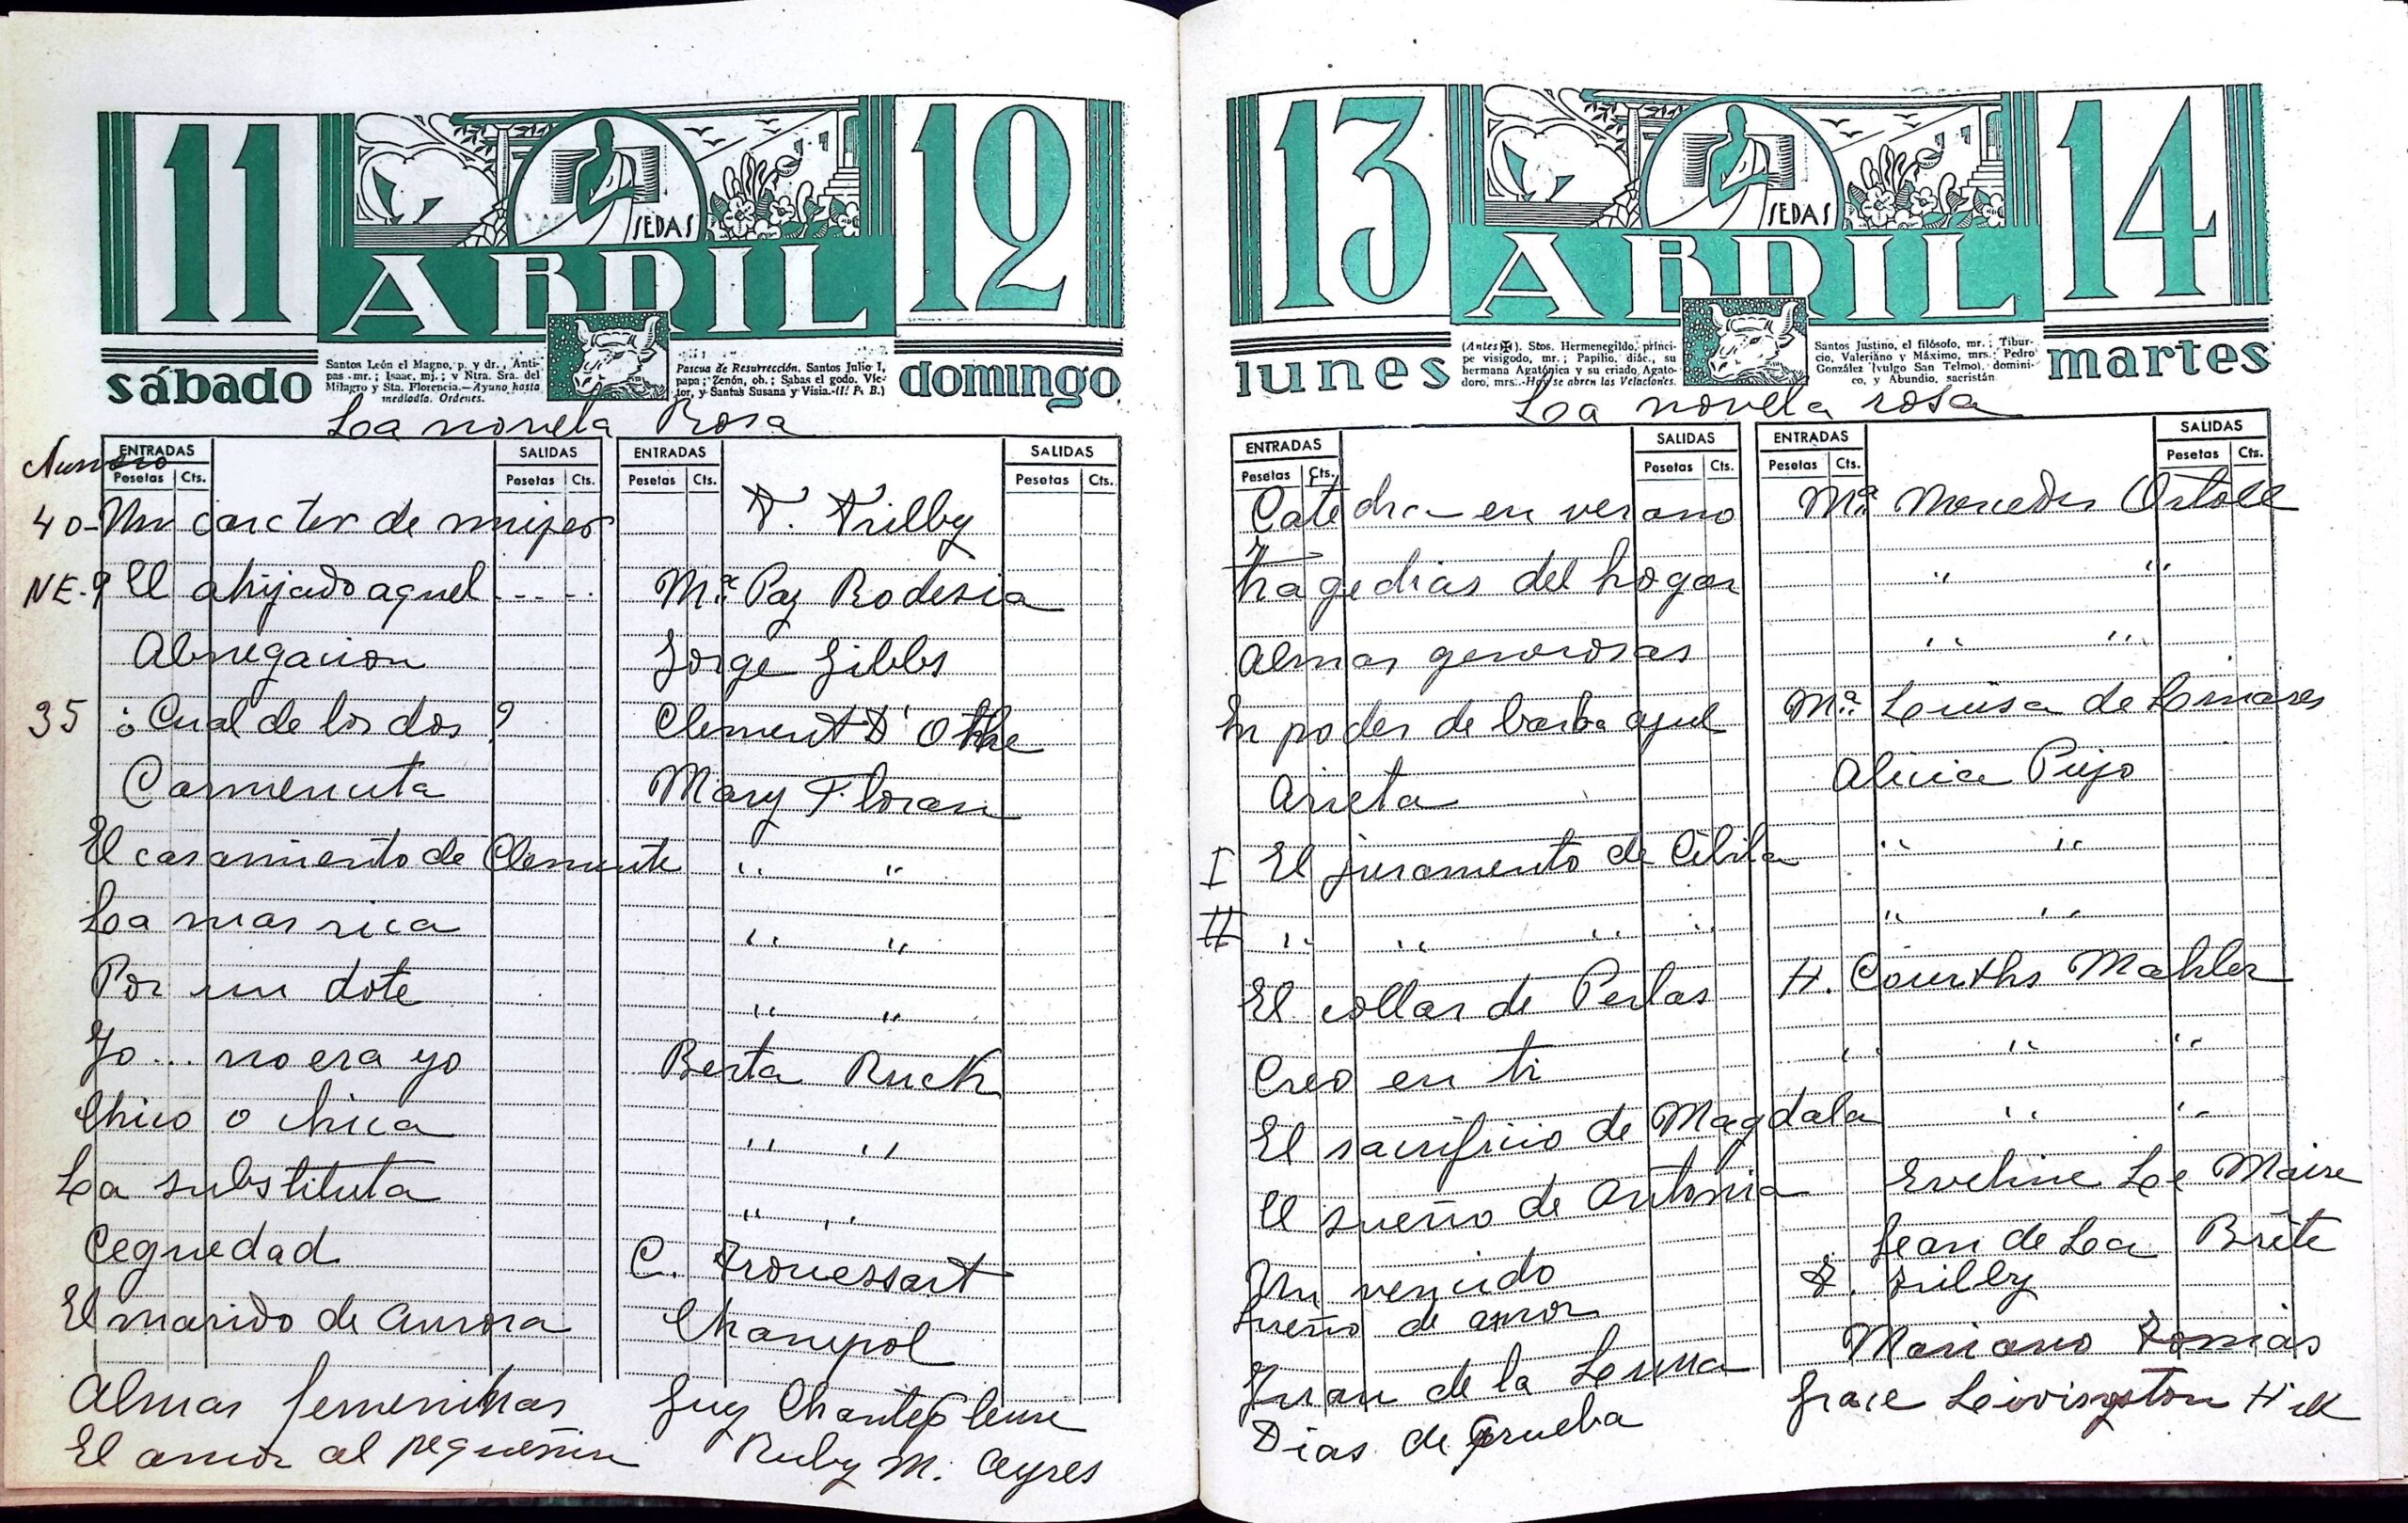 11 ABRIL 12
SEDAS
sábado
Santos León el Magno, p. y dr., Anti-
pas mr.; Isaac, mj.; y Ntra. Sra. del
Milagro y Sta. Florencia.—Ayuno hasta
mediodía. Ordenes.
Pascua de Resurrección. Santos Julio I,
papa; Zenón, ob.; Sabas el godo. Víc-
tor, y Santas Susana y Visia.-(I. P. B.)
domingo
La novela Rosa
Numero
ENTRADAS SALIDAS ENTRADAS SALIDAS
Pesetas Cts. Pesetas Cts. Pesetas Cts. Pesetas Cts.
40- Un caracter de mujer T. Trilby
NE-9 El ahijado aquel - - - - Mª Paz Rodesia
Abnegacion Jorge Gibbs
35 ¿Cual de los dos? Clement D'Othe
Carmencita Mary Floran
El casamiento de Clemente " "
La mas rica " "
Por un dote " "
Yo... no era yo Berta Ruck
Chico o chica " "
La substituta " "
Ceguedad C. Trouessart
El marido de Aurora Champol
Almas femeninas Guy Chantepleure
El amor al pequeñin Ruby M. Ayres
13 ABRIL 14
SEDAS
lunes
(Antes ✠). Stos. Hermenegildo, prínci-
pe visigodo, mr.; Papilio, diác., su
hermana Agatónica y su criado Agato-
doro, mrs.-Hoy se abren las Velaciones.
Santos Justino, el filósofo, mr.; Tibur-
cio, Valeriano y Máximo, mrs.; Pedro
González (vulgo San Telmo), domini-
co, y Abundio, sacristán
martes
La novela rosa
ENTRADAS SALIDAS ENTRADAS SALIDAS
Pesetas Cts. Pesetas Cts. Pesetas Cts. Pesetas Cts.
Catedra en verano Mª Mercedes Ortoll
Tragedias del hogar " "
Almas generosas " "
En poder de barba azul Mª Luisa de Linares
Arieta Alicia Pujo
I El juramento de Cibila " "
II " " " " " "
El collar de Perlas H. Courths Mahler
Creo en ti " " "
El sacrificio de Magdala " "
El sueño de Antonia Eveline Le Maire
Un vencido Jean de La Brète
Sueño de amor T. Trilby
Juan de la Luna Mariano Tomás
Dias de prueba Grace Leivingston Hill